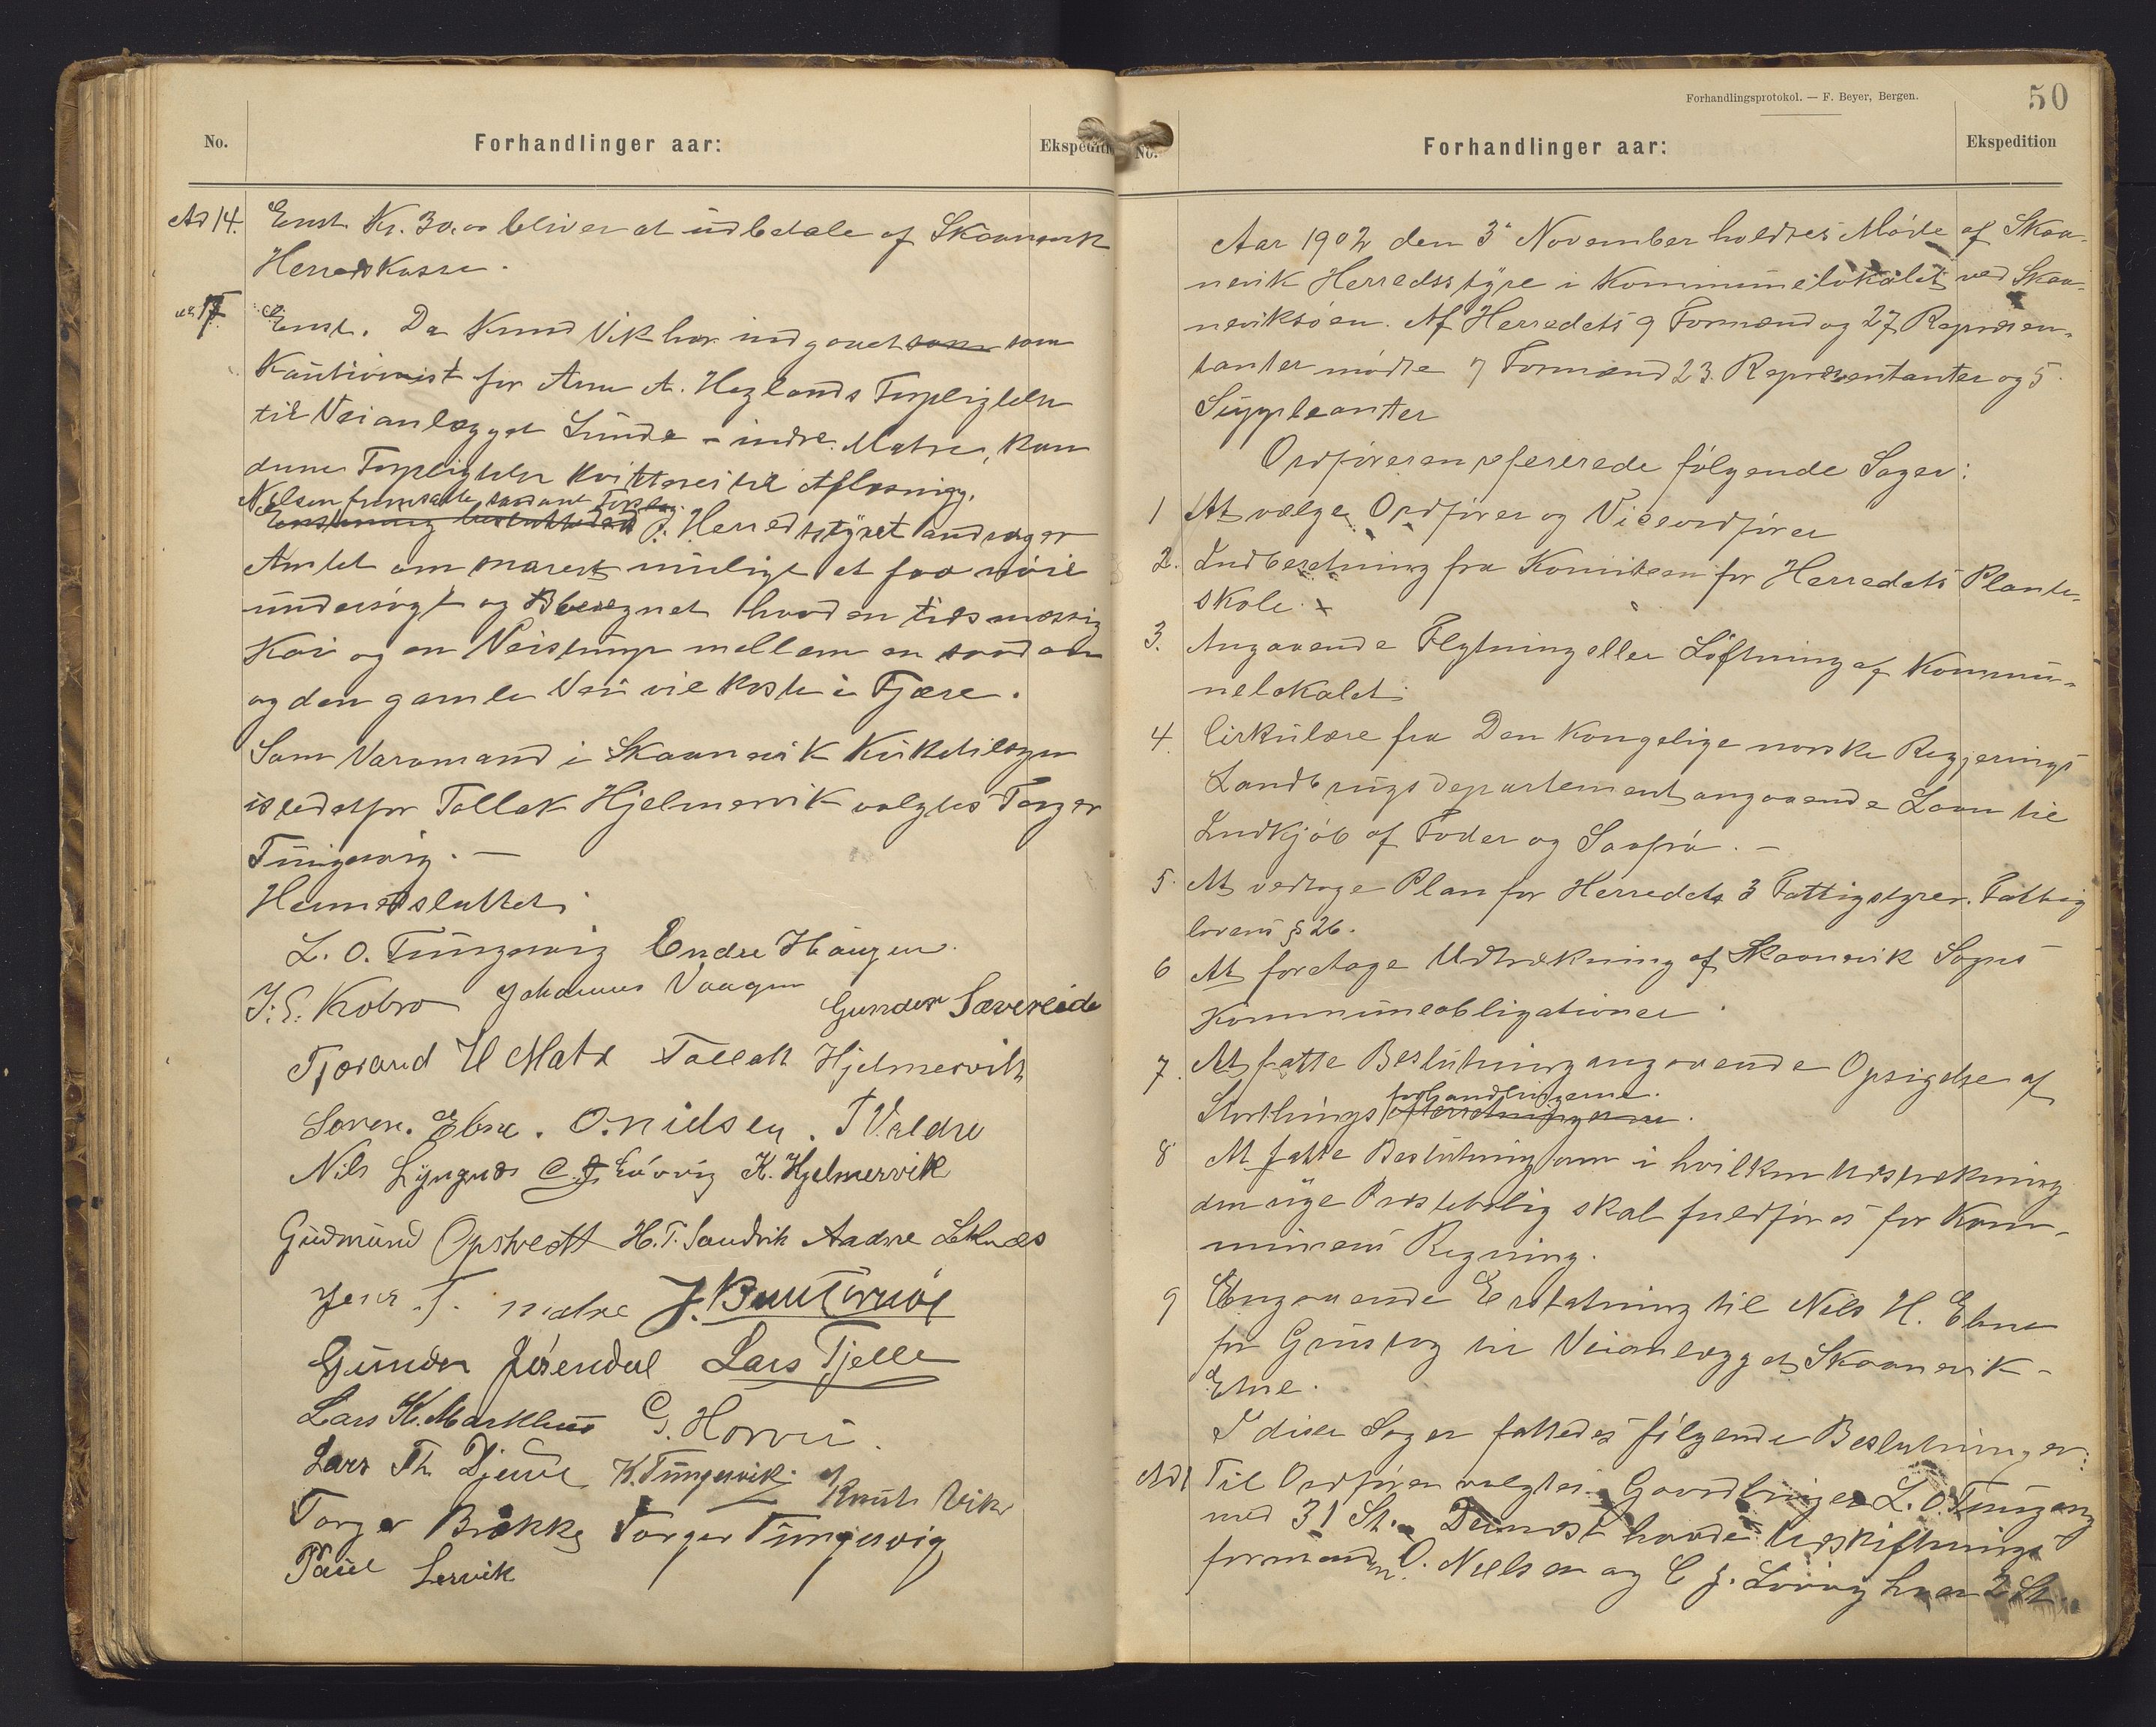 No.
Forhandlinger aar:
Ekspedition
Ad 14. Enst. Kr. 30.00 bliver at udbetale af Skaanevik
Herredskasse.
ad 17. Enst. Da Knud Vik har indgaaet som som
Kautionist for Arne A. Heglands Forpligtelse
til Veianlægget Sunde - indre Matre, kan
denne Forpligtelse kvitteres til Aflæsning.
Nielsen fremsatte saadant Forslag:
Enstemmig besluttedes: Herredsstyret andrager
Amtet om snarest muligt at faa nøie
undersøgt og beregnet hvad en tidsmæssig
Kai og en Veistump mellem en saadan
og den gamle Vei vil koste i Fjære.
Som Varamand i Skaanevik Kirketilsyn
istedetfor Tollak Hjelmervik valgtes Torger
Tungesvig. —
Hermed sluttet.
L. O. Tungesvig Endre Haugen
J. E. Kobro Johannes Vaagen Gunder Sævereide
Tjørand H Matre Tollak Hjelmervik
Søren. Ebne. O. Nielsen. T Valdre
Nils Lyngnes C. J. Løvvig K. Hjelmervik
Gudmund Opstvedt H. T. Sandvik Aadne Leknes
Jens T. matre J. Bauternøe
Gunder Jøsendal Lars Tjelle
Lars K. Markhus G. Horvei.
Lars Th. Djuve K. Tungesvik. Knut Vik
Torger Brekke Torger Tungesvig
Paul Lervik
Forhandlingsprotokol. — F. Beyer, Bergen.
50
No.
Forhandlinger aar:
Ekspedition
Aar 1902 den 3' November holdtes Møde af Skaa-
nevik Herredsstyre i Kommunelokalet ved Skaa-
neviksøen. Af Herredets 9 Formænd og 27 Repræsen-
tanter mødte 7 Formænd 23 Repræsentanter og 5
Suppleanter
Ordføreren refererede følgende Sager:
1 At vælge Ordfører og Viceordfører
2. Indberetning fra Komiteen for Herredets Plante-
skole.
3. Angaaende Flytning eller Løftning af Kommu-
nelokalet.
4. Cirkulære fra Den kongelige norske Regjerings
Landbrugsdepartement angaaende Laan til
Indkjøb af Foder og Saafrø. —
5. At vedtage Plan for Herredets 3 Fattigstyrer. Fattig
lovens § 26.
6 At foretage Udtrækning af Skaanevik Sogns
Kommuneobligationer.
7. At fatte Beslutning angaaende Opsigelse af
Storthingsforhandlingerne.
efterretningerne.
8 At fatte Beslutning om i hvilken Udstrækning
den nye Prestebolig skal fuldføres for Kom-
munens Regning.
9 Angaaende Erstatning til Nils H. Ebne
for Grustag til Veianlægget Skaanevik -
Etne.
I disse Sager fattedes følgende Beslutninger:
Ad 1 Til Ordfører valgtes Gaardbruger L. O. Tungesvig
med 31 St. Dernæst havde Udskiftnings
formanden O. Nielsen og C. J. Løvvig hver 2 St.